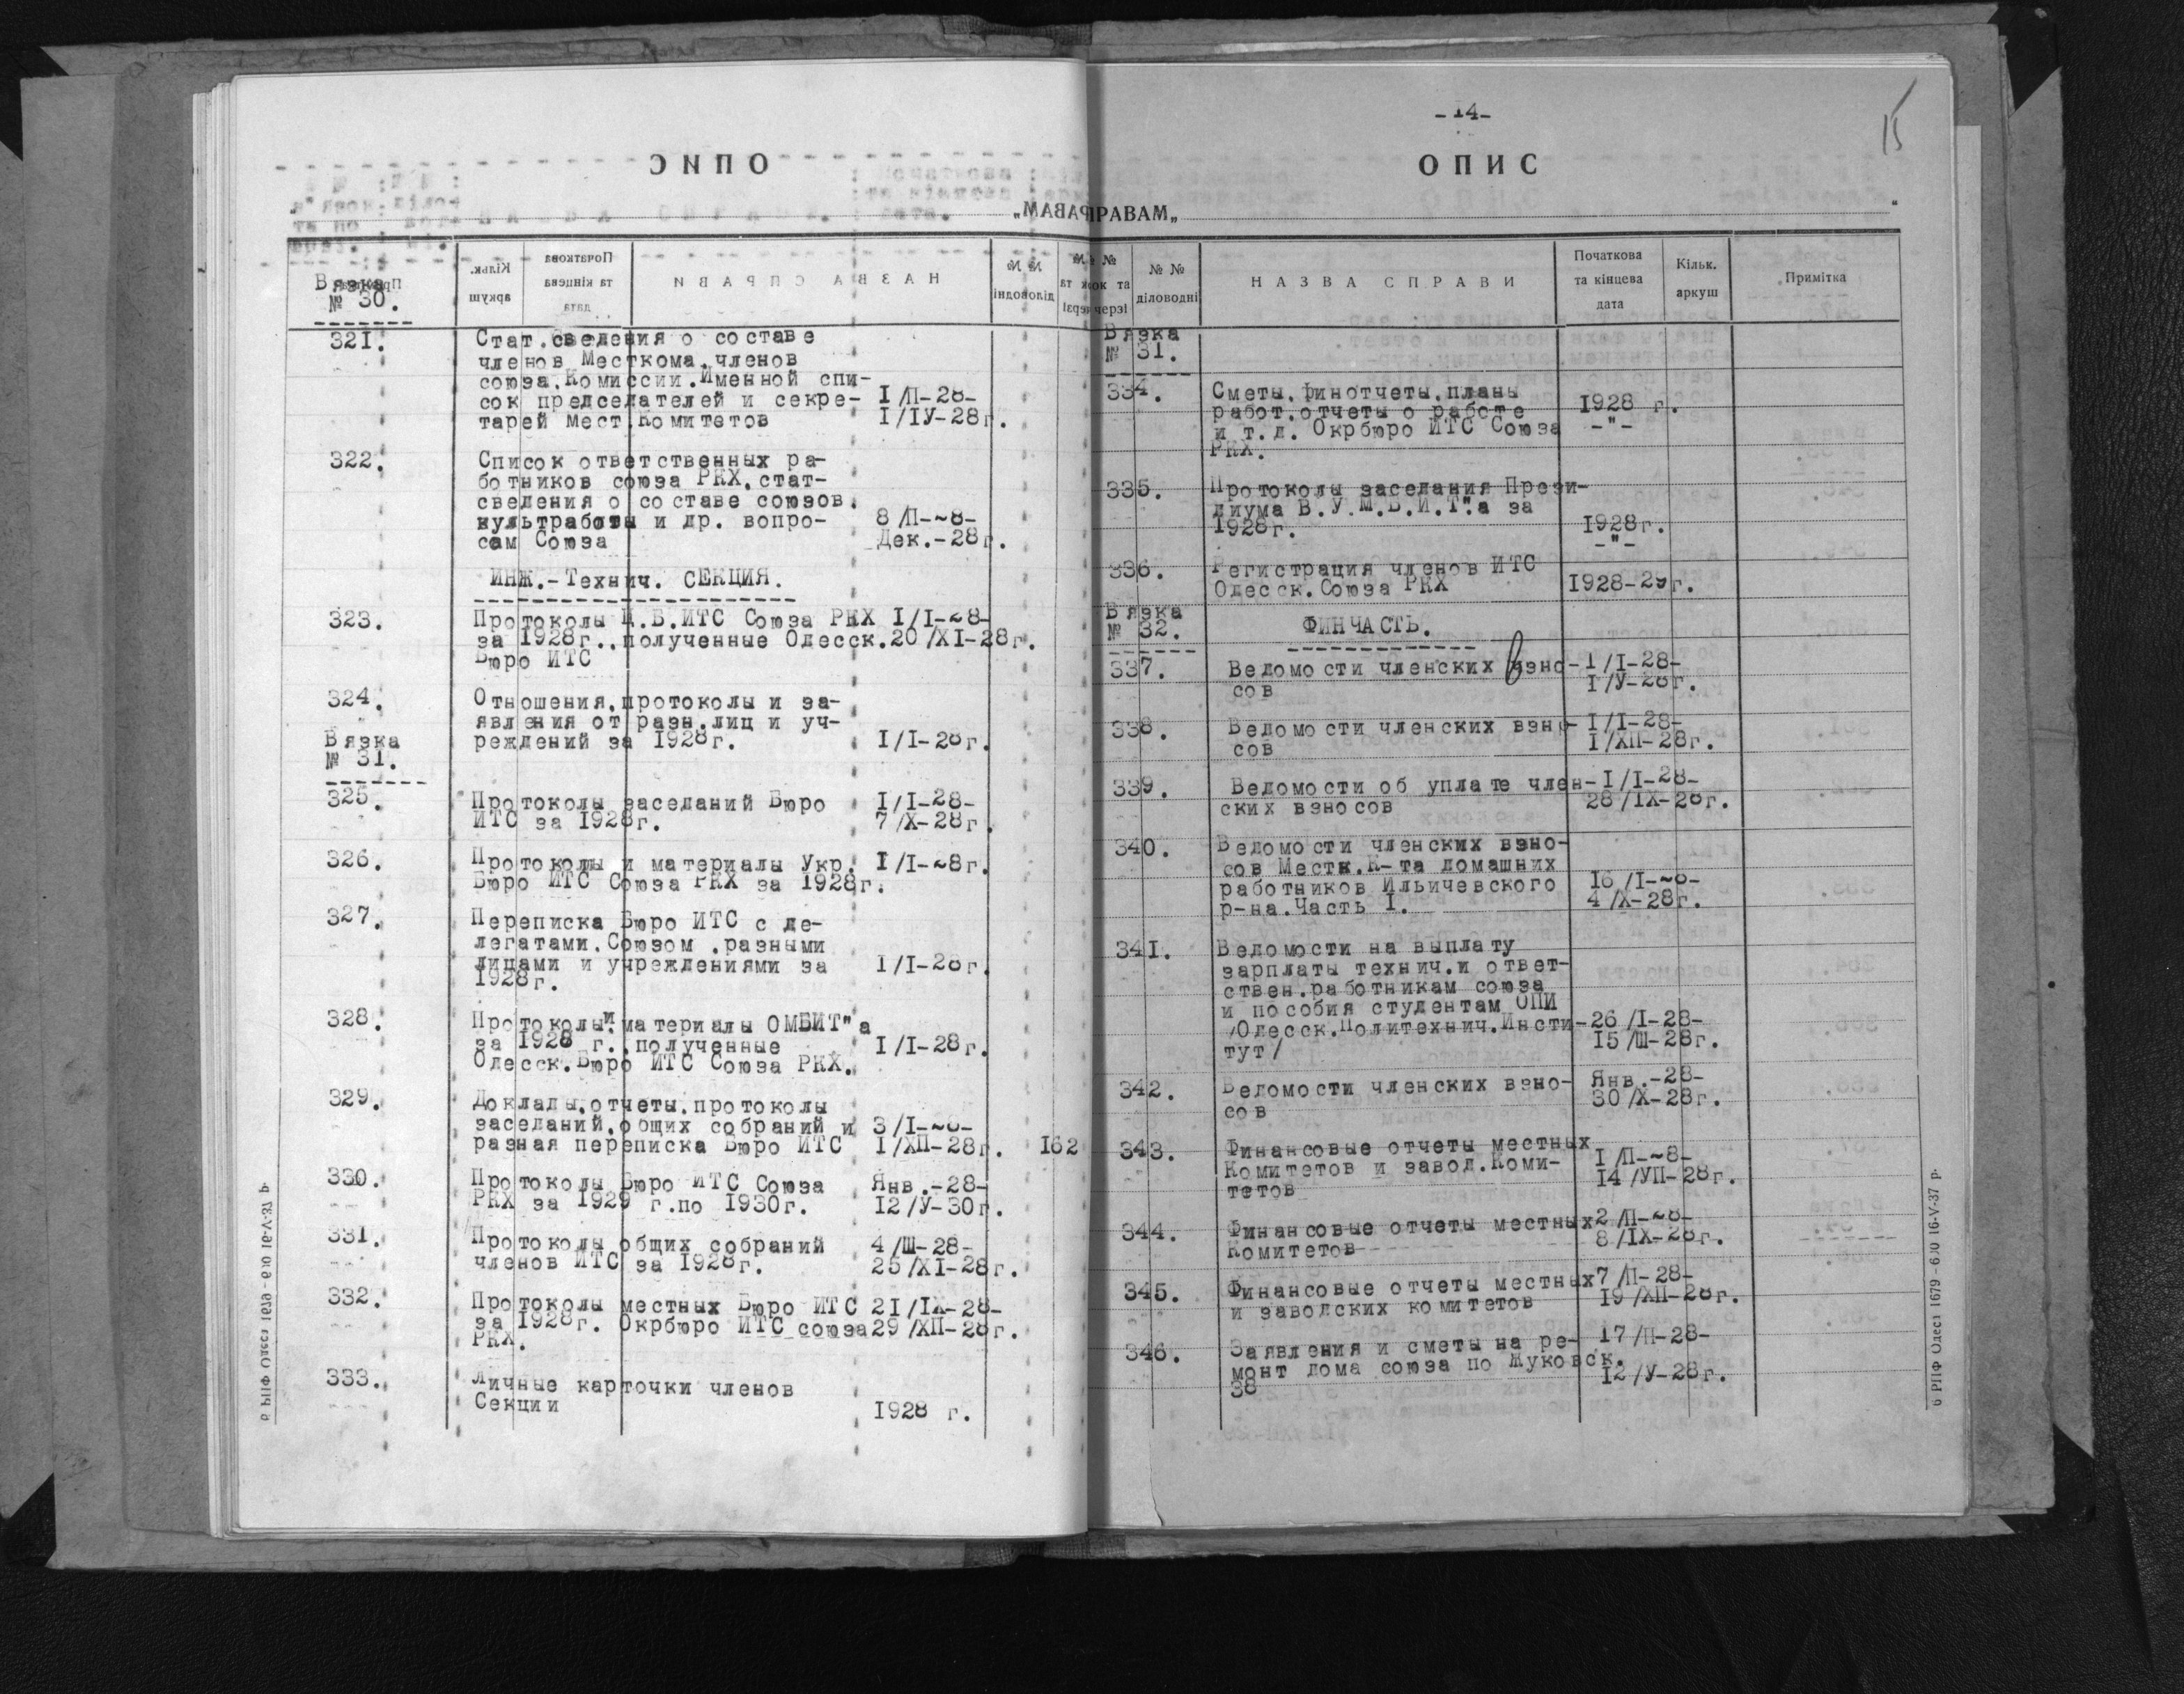 Вязка
№ 30.
321. Стат.сведения о составе
членов Месткома.членов
союза.Комиссии.Именной спи-
сок председателей и секре- I/П-28-
тарей Мест.Комитетов I/IУ-28г.
322. Список ответственных ра-
ботников союза РКХ.стат-
сведения о составе союзов.
культработы и др. вопро- 8/П-28-
сам Союза Дек.-28г.
ИНЖ.-Технич. СЕКЦИЯ.
323. Протоколы Ц.Б.ИТС Союза РКХ I/I-28-
за 1928г..полученные Одесск. 20/XI-28г.
Бюро ИТС
324. Отношения.протоколы и за-
явления от разн.лиц и уч-
реждений за 1928г. I/I-28г.
Вязка
№ 31.
325. Протоколы заседаний Бюро I/I-28-
ИТС за 1928г. 7/X-28г.
326. Протоколы и материалы Укр. I/I-28г.
Бюро ИТС Союза РКХ за 1928г.
327. Переписка Бюро ИТС с де-
легатами.Союзом .разными
лицами и учреждениями за I/I-28г.
1928г.
328. Протоколы и материалы ОМБИТ"а
за 1928 г..полученные I/I-28г.
Одесск.Бюро ИТС Союза РКХ.
329. Доклады.отчеты.протоколы
заседаний.общих собраний и 3/I-28-
разная переписка Бюро ИТС I/XП-28г. 162
330. Протоколы Бюро ИТС Союза Янв.-28-
РКХ за 1929 г.по 1930г. 12/У-30г.
331. Протоколы общих собраний 4/Ш-28-
членов ИТС за 1928г. 25/XI-28г.
332. Протоколы местных Бюро ИТС 21/IX-28-
за 1928г. Окрбюро ИТС союза 29/XП-28г.
РКХ.
333. Личные карточки членов
Секции 1928 г.
-14-
15
ОПИС
СПРАВАМ „
№ №
діловодні
НАЗВА СПРАВИ
Початкова
та кінцева
дата
Кільк.
аркуш
Примітка
Вязка
№ 31.
334. Сметы.Финотчеты.планы
работ.отчеты о работе 1928 г.
и т.д. Окрбюро ИТС Союза -"-
РКХ.
335. Протоколы заседания Прези-
диума В.У.М.Б.И.Т".а за
1928г. 1928г.
-"-
336. Регистрация членов ИТС
Одесск.Союза РКХ 1928-29г.
Вязка
№ 32. ФИНЧАСТЬ.
337. Ведомости членских взно- 1/I-28-
сов I/У-28г.
338. Ведомости членских взно- I/I-28-
сов I/XП-28г.
339. Ведомости об уплате член- I/I-28-
ских взносов 28/IX-28г.
340. Ведомости членских взно-
сов Местк.К-та домашних
работников Ильичевского 16/I-28-
р-на.Часть I. 4/X-28г.
341. Ведомости на выплату
зарплаты технич.и ответ-
ствен.работникам союза
и пособия студентам ОПИ
/Одесск.Политехнич.Инсти- 26/I-28-
тут/ 15/Ш-28г.
342. Ведомости членских взно- Янв.-28-
сов 30/X-28г.
343. Финансовые отчеты местных
Комитетов и завод.Коми- I/П-28-
тетов 14/УП-28г.
344. Финансовые отчеты местных 2/П-28-
Комитетов 8/IX-28г.
345. Финансовые отчеты местных 7/П-28-
и заводских комитетов 19/XП-28г.
346. Заявления и сметы на ре- 17/П-28-
монт дома союза по Жуковск.
38 12/У-28г.
6 РПФ Одеса 1679-6.0 16-V-37 р.